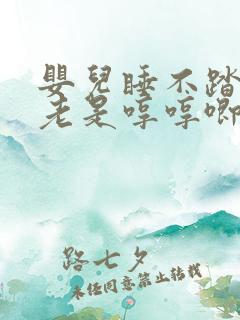 嬰兒睡不踏
老是哼哼唧
路七夕
未经同意禁止转载